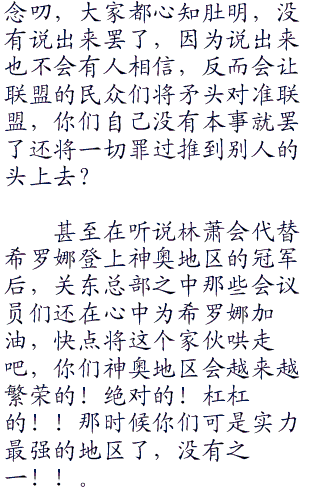 念叨，大家都心知肚明，没
有说出来罢了，因为说出来
也不会有人相信，反而会让
联盟的民众们将矛头对准联
盟，你们自己没有本事就罢
了还将一切罪过推到别人的
头上去？
甚至在听说林萧会代替
希罗娜登上神奥地区的冠军
后，关东总部之中那些会议
员们还在心中为希罗娜加
油，快点将这个家伙哄走
吧，你们神奥地区会越来越
繁荣的！绝对的！杠杠
的！！那时候你们可是实力
最强的地区了，没有之
一！！。